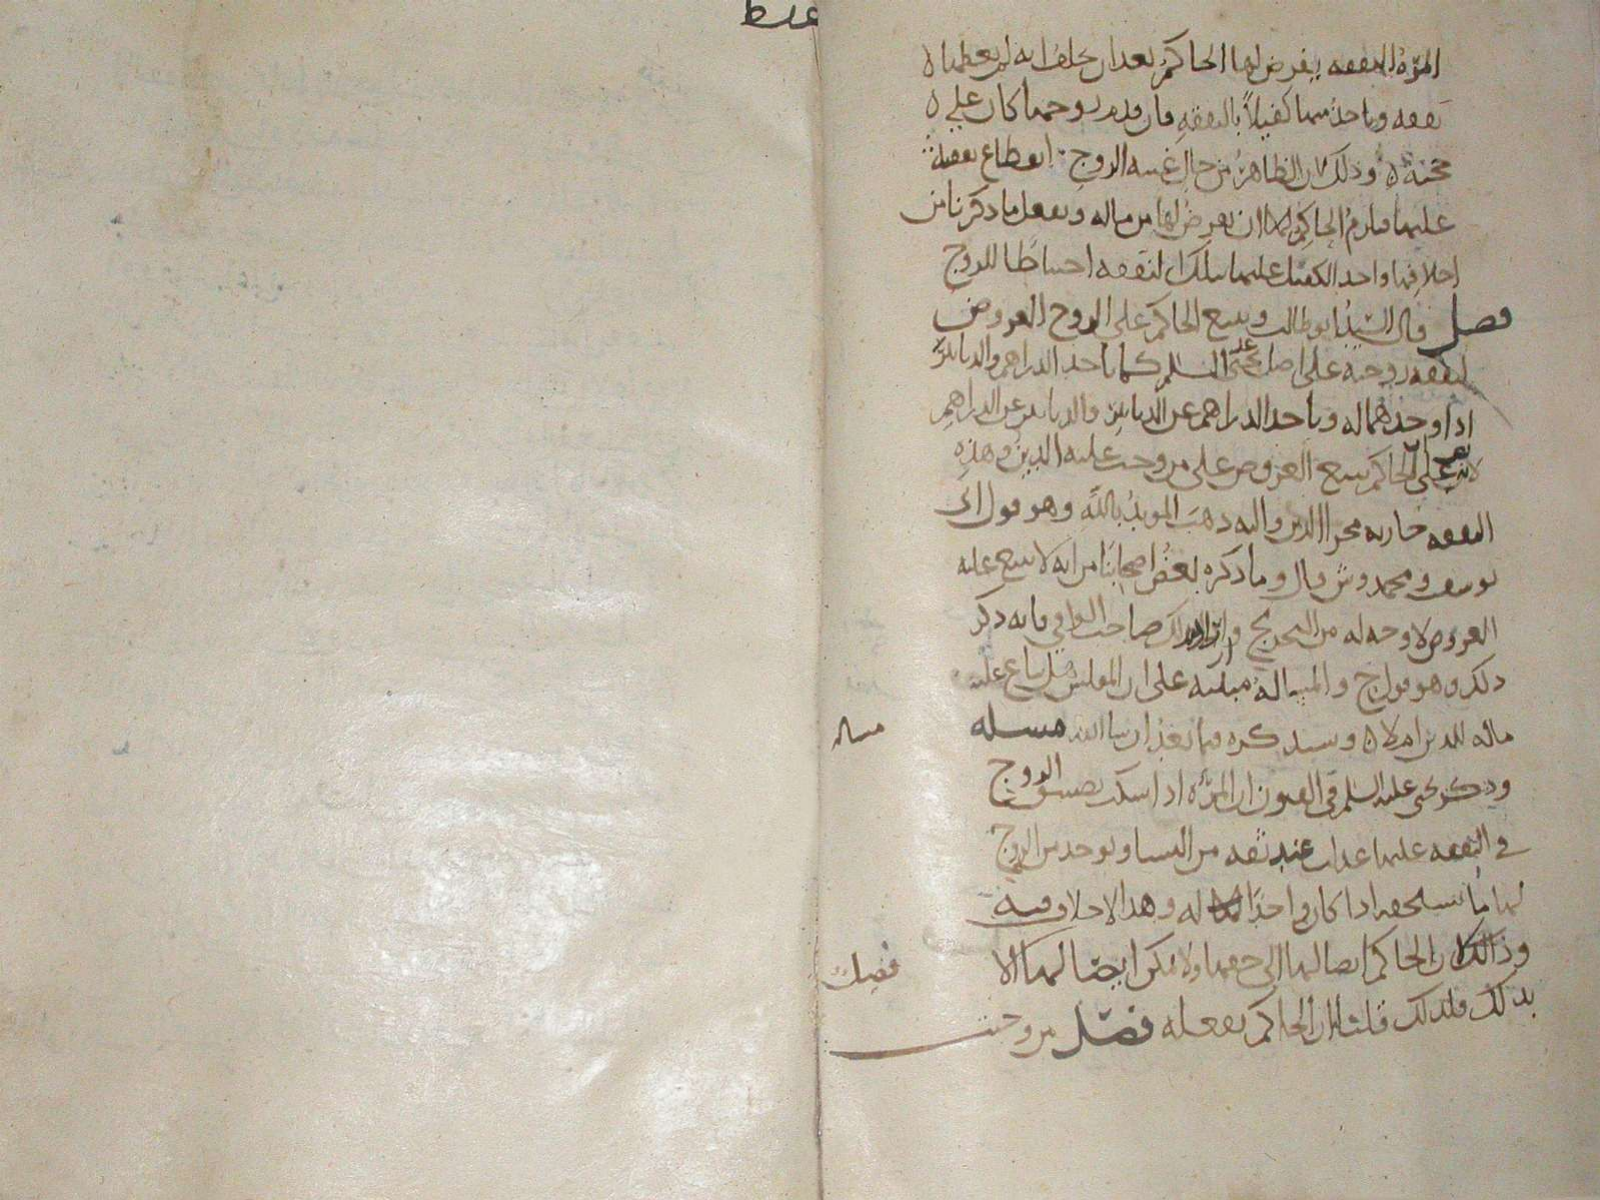 غلط
المرأة النفقه يفرض لها الحاكم بعد ان يحلف انه لم يعطها
نفقه وياخذ منها كفيلاً بالنفقه فان قدم زوجها كان على
حجته وذلك لان الظاهر من حال غيبه الزوج انقطاع نفقته
عليها فيلزم الحاكم ان يفرض لها من ماله ويفعل ما ذكرنا من
احلافها واخذ الكفيل عليها بتلك النفقه احتياطا للزوج
فصل قال السيد ابو طالب ويبيع الحاكم على الزوج العروض
لنفقه زوجته على اصل يحيى عليه السلم كما ياخذ الدراهم والدنانير
اذا وجدهما له وياخذ الدراهم عن الدنانير والدنانير عن الدراهم
لانه نص على الحاكم يبيع العروض على من وجب عليه الدين وهذه
النفقه جاريه مجرا الدين واليه ذهب المويد بالله وهو قول ابى
يوسف ومحمد وش قال وما ذكره بعض اصحابنا من انه لا يبيع عليه
العروض لا وجه له من التخريج صاحب الوافي فانه ذكر
ذلك وهو قول ح والمساله مبنيه على ان المفلس هل يباع عليه
ماله للدين ام لا وسنذكره فيما بعد ان شا الله مسله
مساله
وذكر يحيى عليه السلم في الفنون ان المرأة اذا اشتكت تضييق الزوج
في النفقه عليها عدلت عند ثقه من النسا ويوخذ من الزوج
لها ما تستحقه اذا كان واجدًا له وهذا لا خلاف فيه
وذالك لان الحاكم ايصالها الى حقها ولا يمكن ايصالها الا
فصل
بذلك فلذلك قلنا ان الحاكم يفعله فصل من وجبت